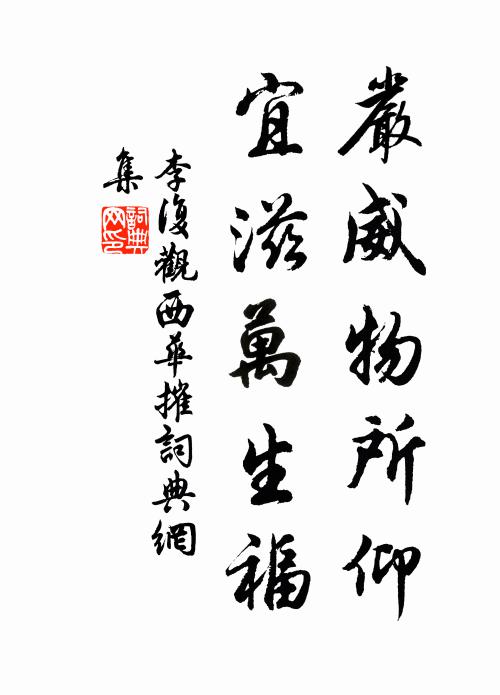 嚴威物所仰
宜滋萬生福
李復觀西華摧詞典網
集
詞典網印